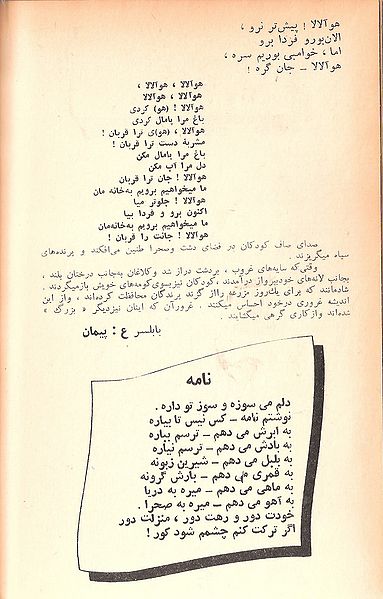 هوآلالا ! پیش‌تر نرو ،
الان‌بورو فردا برو
اما ، خوامبی بوریم سره ،
هوآلالا – جان گره !
هوآلالا ، هوآلالا ،
هوآلالا ، هوآلالا
هوآلالا ! (هو) کردی
باغ مرا پامال کردی
هوآلالا ، (هو)ی ترا قربان !
مشربهٔ دست ترا قربان !
باغ مرا پامال مکن
دل مرا آب مکن
هوآلالا ! جان ترا قربان
ما میخواهیم برویم به‌خانه مان
هوآلالا ! جلوتر میا
اکنون برو و فردا بیا
ما میخواهیم برویم به‌خانه‌مان
هوآلالا ! جانت را قربان !
صدای صاف کودکان در فضای دشت وصحرا طنین می‌افکند و پرنده‌های
سیاه میگریزند .
وقتی‌که سایه‌های غروب ، بردشت دراز شد وکلاغان به‌جانب درختان بلند .
بجانب لانه‌های خودبپرواز درآمدند ، کودکان نیزبسوی‌کومه‌های خویش بازمیگردند .
شادمانند که برای یك‌روز مزرعه رااز گزند پرندگان محافظت کرده‌اند ، واز این
اندیشه غروری درخود احساس میکنند . غرورآن که اینان نیزدیگر « بزرگ »
شده‌اند وازکاری گرهی میگشایند .
بابلسر ع : پیمان
نامه
دلم می سوزه و سوز تو داره .
نوشتم نامه – کس نیس تا بیاره
به ابرش می دهم – ترسم بباره
به بادش می دهم – ترسم نیاره
به بلبل می دهم – شیرین زبونه
به قمری می دهم – بارش گرونه
به ماهی می دهم – میره به دریا
به آهو می دهم – میره به صحرا .
خودت دور و رهت دور ، منزلت دور
اگر ترکت کنم چشمم شود کور !